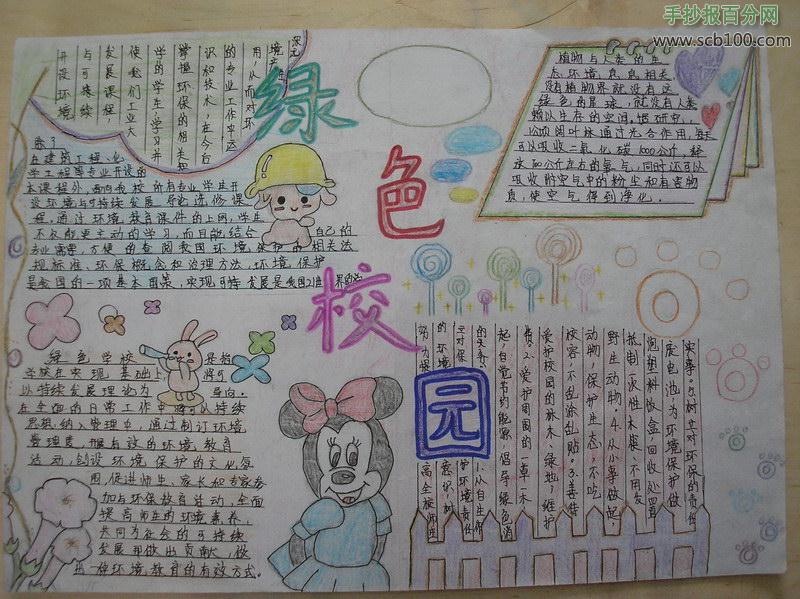 手抄报百分网
www.scb100.com
绿
色
校
园
植物与人类的生
态环境息息相关
没有植物界就没有这
绿色的星球，就没有人类
赖以生存的空间。据研究，
公顷阔叶林通过光合作用，每天
可以吸收二氧化碳1000公斤，释
吸收贮空气中的粉尘和有害物
质，使空气得到净化。
用，从而对环
的专业工作早达
识和技术，在今后
掌握环保的相关知
学的学生，学习并
使我们工业大
发展课程，
与可持续
开设环境
除了
在建筑工程、化
学工程等专业开设的
本课程外，面向我校所有专业学生开
设环境与可持续发展导论选修课
程，通过环境教育课件的上网，学生
不仅能更主动的学习，而且能结合
自己的
专业需要，方便的查阅我国环境保护的相关法
规标准、环保概念和治理方法，环境保护
是我国的一项基本国策，实现可持续发展是我国21世
绿色学校
是指
学校在实现
基础上，
将可
以持续发展理论为
导向。
在全面的日常工作中将可以持续
思想纳入管理中，通过制订环境
管理度，握有效的环境教育
活动，创设环境保护的文化氛
围，促进师生、家长和专家参
加与环保教育活动，全面
提高师生的环境素养，
共同为社会的可持续
发展那做出贡献，做
一种环境教育的有效方式。
实事。5、树立对环保的责任
废电池；为环境保护做
泡塑料饭盒回收处置
抵制一次性木筷，不用发
野生动物。4、从小事做起，
动物，保护生态，不吃
校容，不乱涂乱贴。3、善待
爱护校园的林木、绿地，维护
2、爱护周围的草木
起，自觉节约能源，倡导绿色消